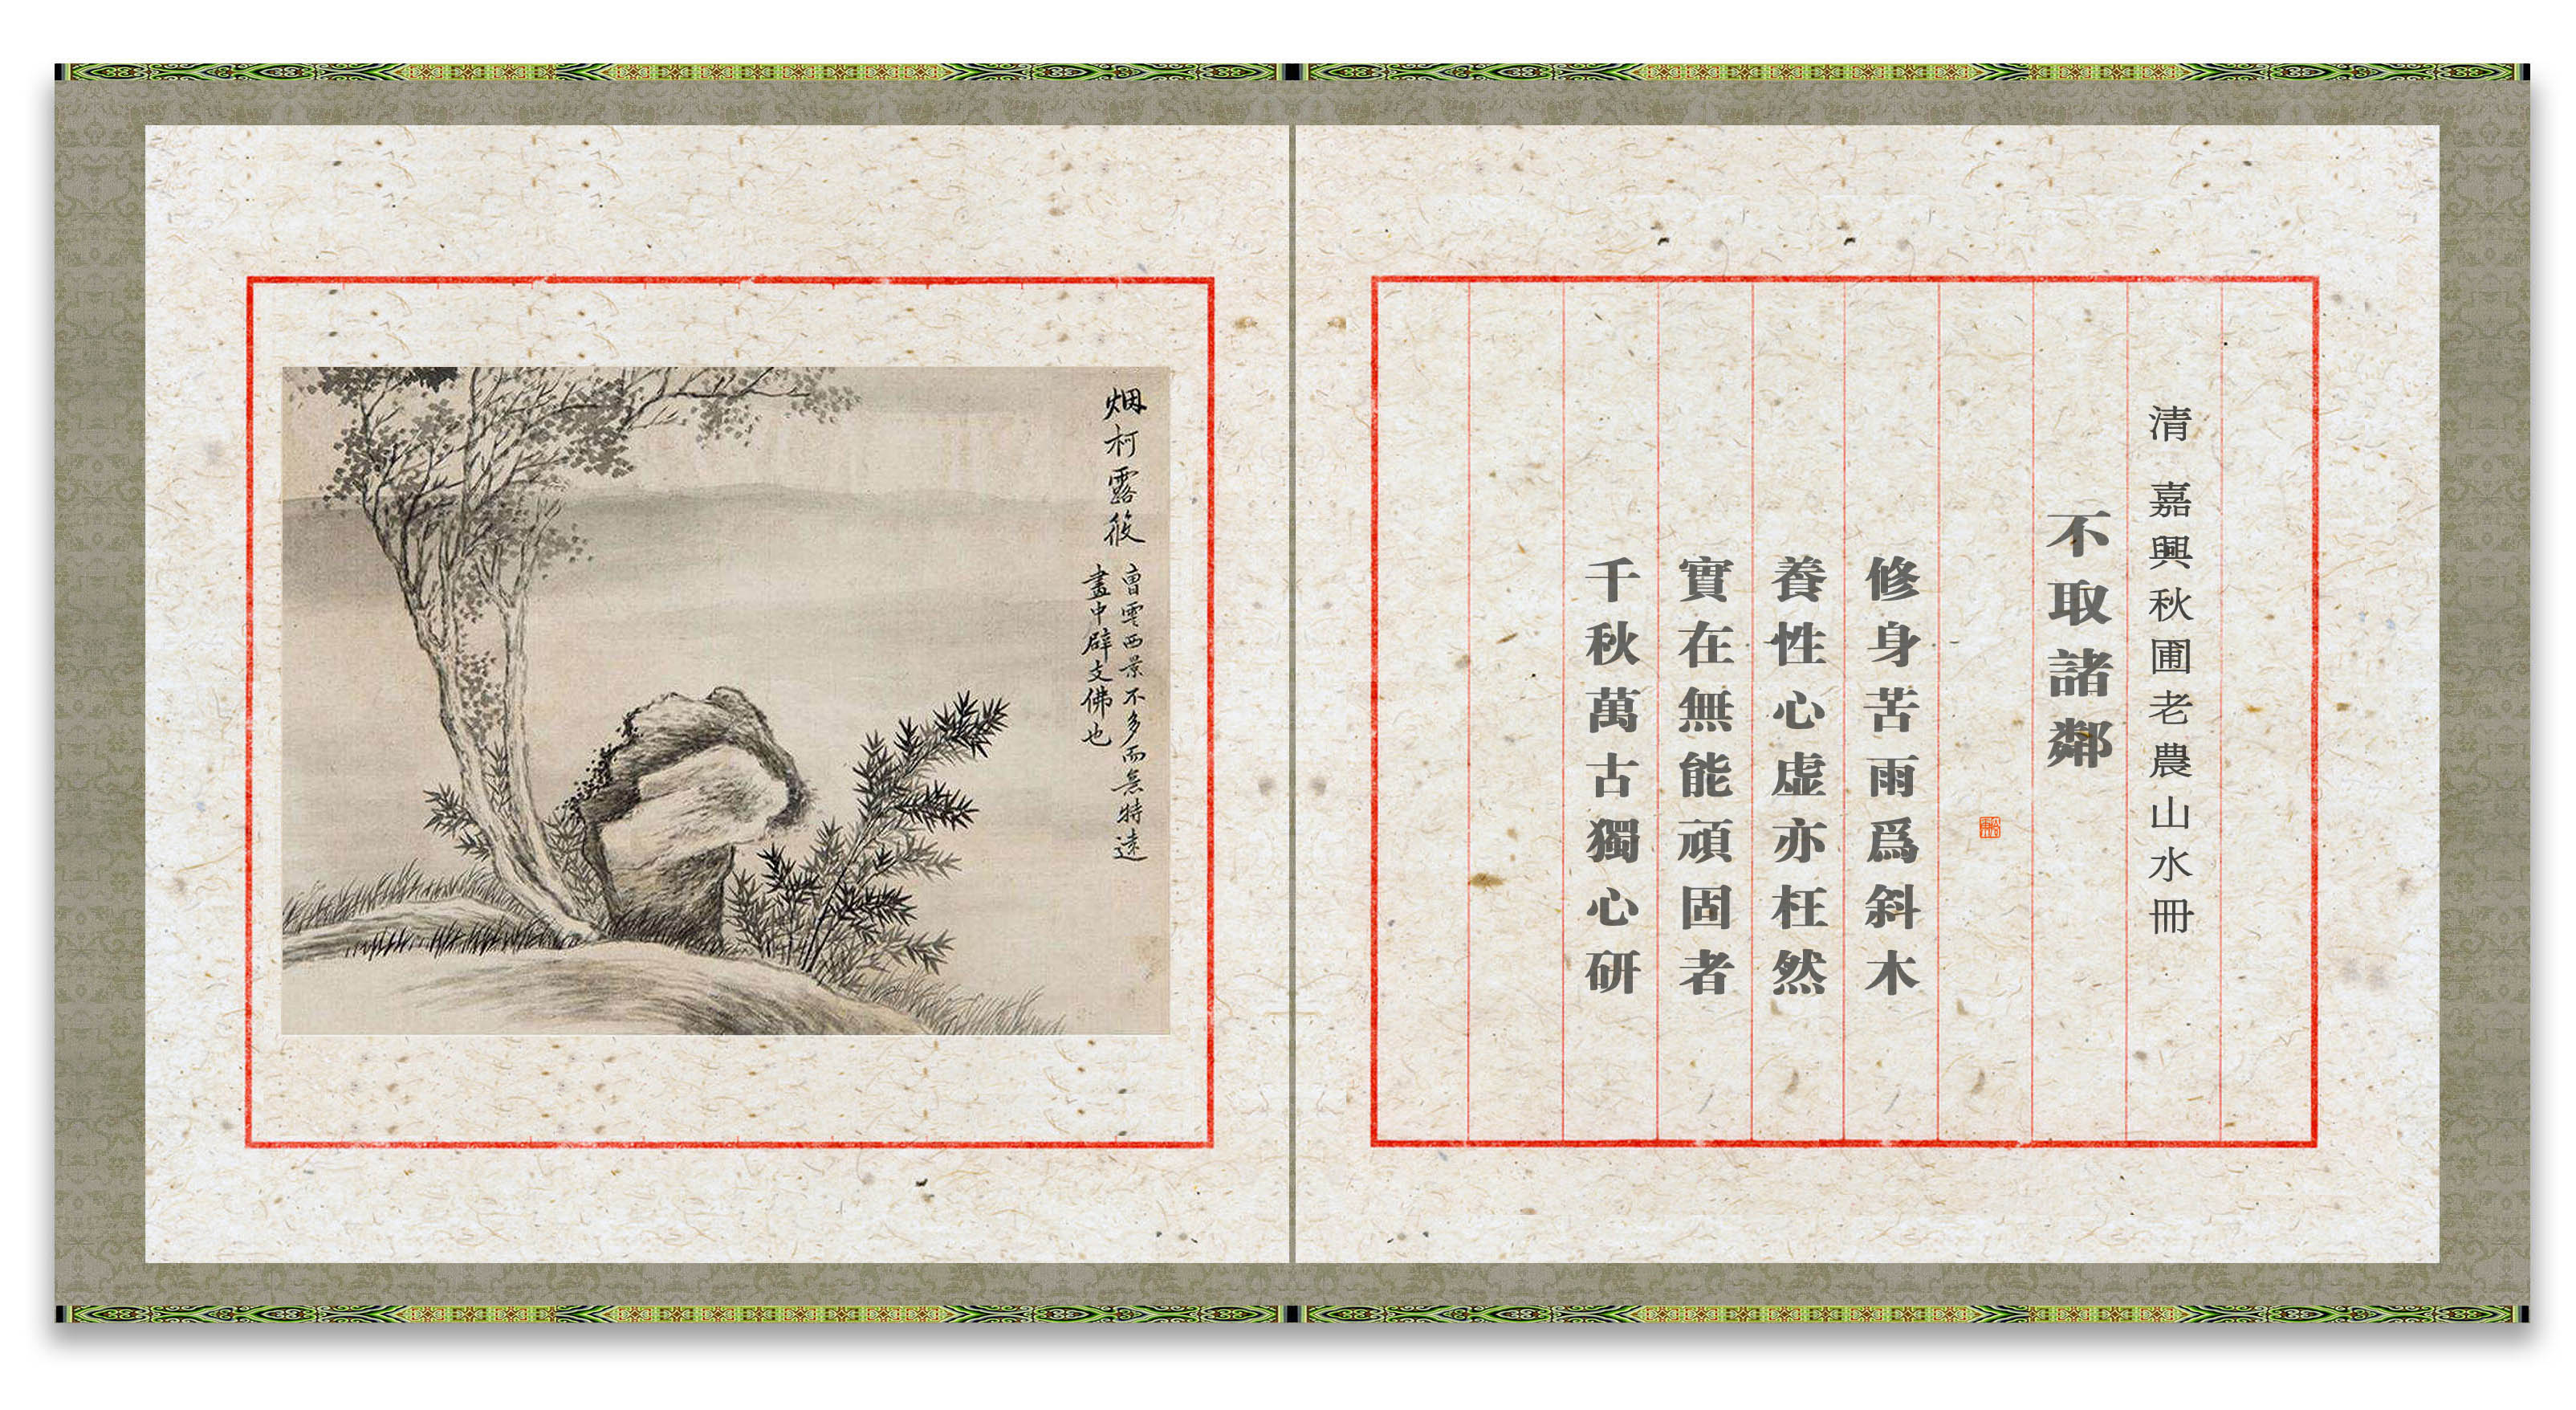 清 嘉興秋圃老農山水冊
不取諸鄰
修身苦雨爲斜木
養性心虛亦枉然
實在無能頑固者
千秋萬古獨心研
烟柯露筱
曹雲西景不多而無特遠
畫中辟支佛也